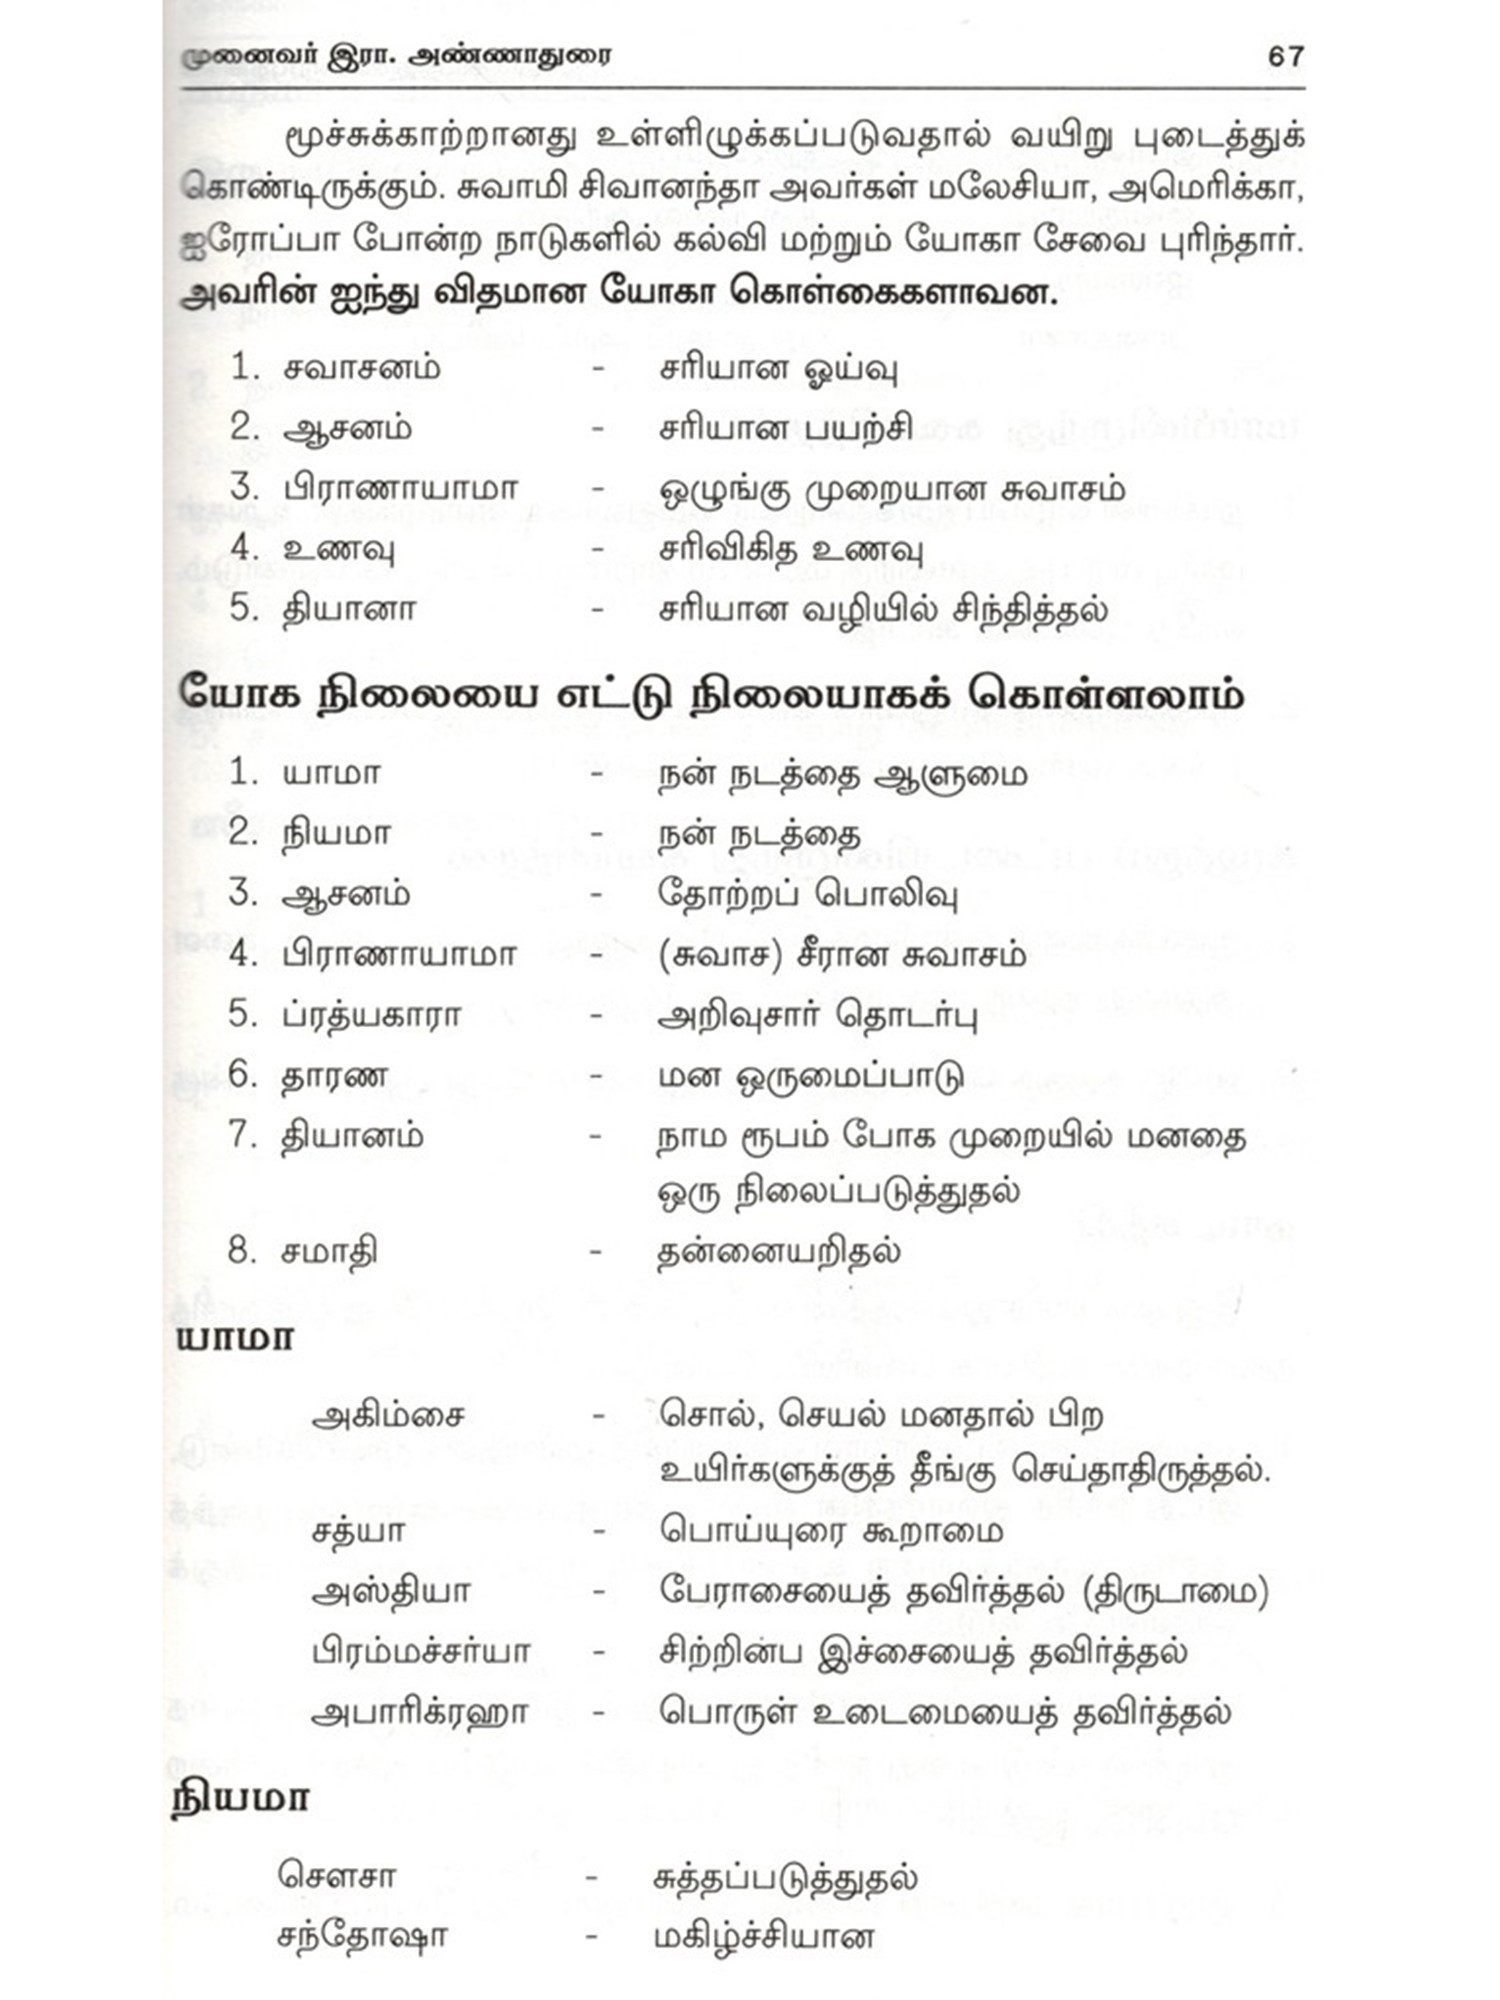 முனைவர் இரா. அண்ணாதுரை 67
மூச்சுக்காற்றானது உள்ளிழுக்கப்படுவதால் வயிறு புடைத்துக்
கொண்டிருக்கும். சுவாமி சிவானந்தா அவர்கள் மலேசியா, அமெரிக்கா,
ஐரோப்பா போன்ற நாடுகளில் கல்வி மற்றும் யோகா சேவை புரிந்தார்.
அவரின் ஐந்து விதமான யோகா கொள்கைகளாவன.
1. சவாசனம் - சரியான ஓய்வு
2. ஆசனம் - சரியான பயற்சி
3. பிராணாயாமா - ஒழுங்கு முறையான சுவாசம்
4. உணவு - சரிவிகித உணவு
5. தியானா - சரியான வழியில் சிந்தித்தல்
யோக நிலையை எட்டு நிலையாகக் கொள்ளலாம்
1. யாமா - நன் நடத்தை ஆளுமை
2. நியமா - நன் நடத்தை
3. ஆசனம் - தோற்றப் பொலிவு
4. பிராணாயாமா - (சுவாச) சீரான சுவாசம்
5. ப்ரத்யகாரா - அறிவுசார் தொடர்பு
6. தாரண - மன ஒருமைப்பாடு
7. தியானம் - நாம ரூபம் போக முறையில் மனதை
ஒரு நிலைப்படுத்துதல்
8. சமாதி - தன்னையறிதல்
யாமா
அகிம்சை - சொல், செயல் மனதால் பிற
உயிர்களுக்குத் தீங்கு செய்தாதிருத்தல்.
சத்யா - பொய்யுரை கூறாமை
அஸ்தியா - பேராசையைத் தவிர்த்தல் (திருடாமை)
பிரம்மச்சர்யா - சிற்றின்ப இச்சையைத் தவிர்த்தல்
அபாரிக்ரஹா - பொருள் உடைமையைத் தவிர்த்தல்
நியமா
சௌசா - சுத்தப்படுத்துதல்
சந்தோஷா - மகிழ்ச்சியான